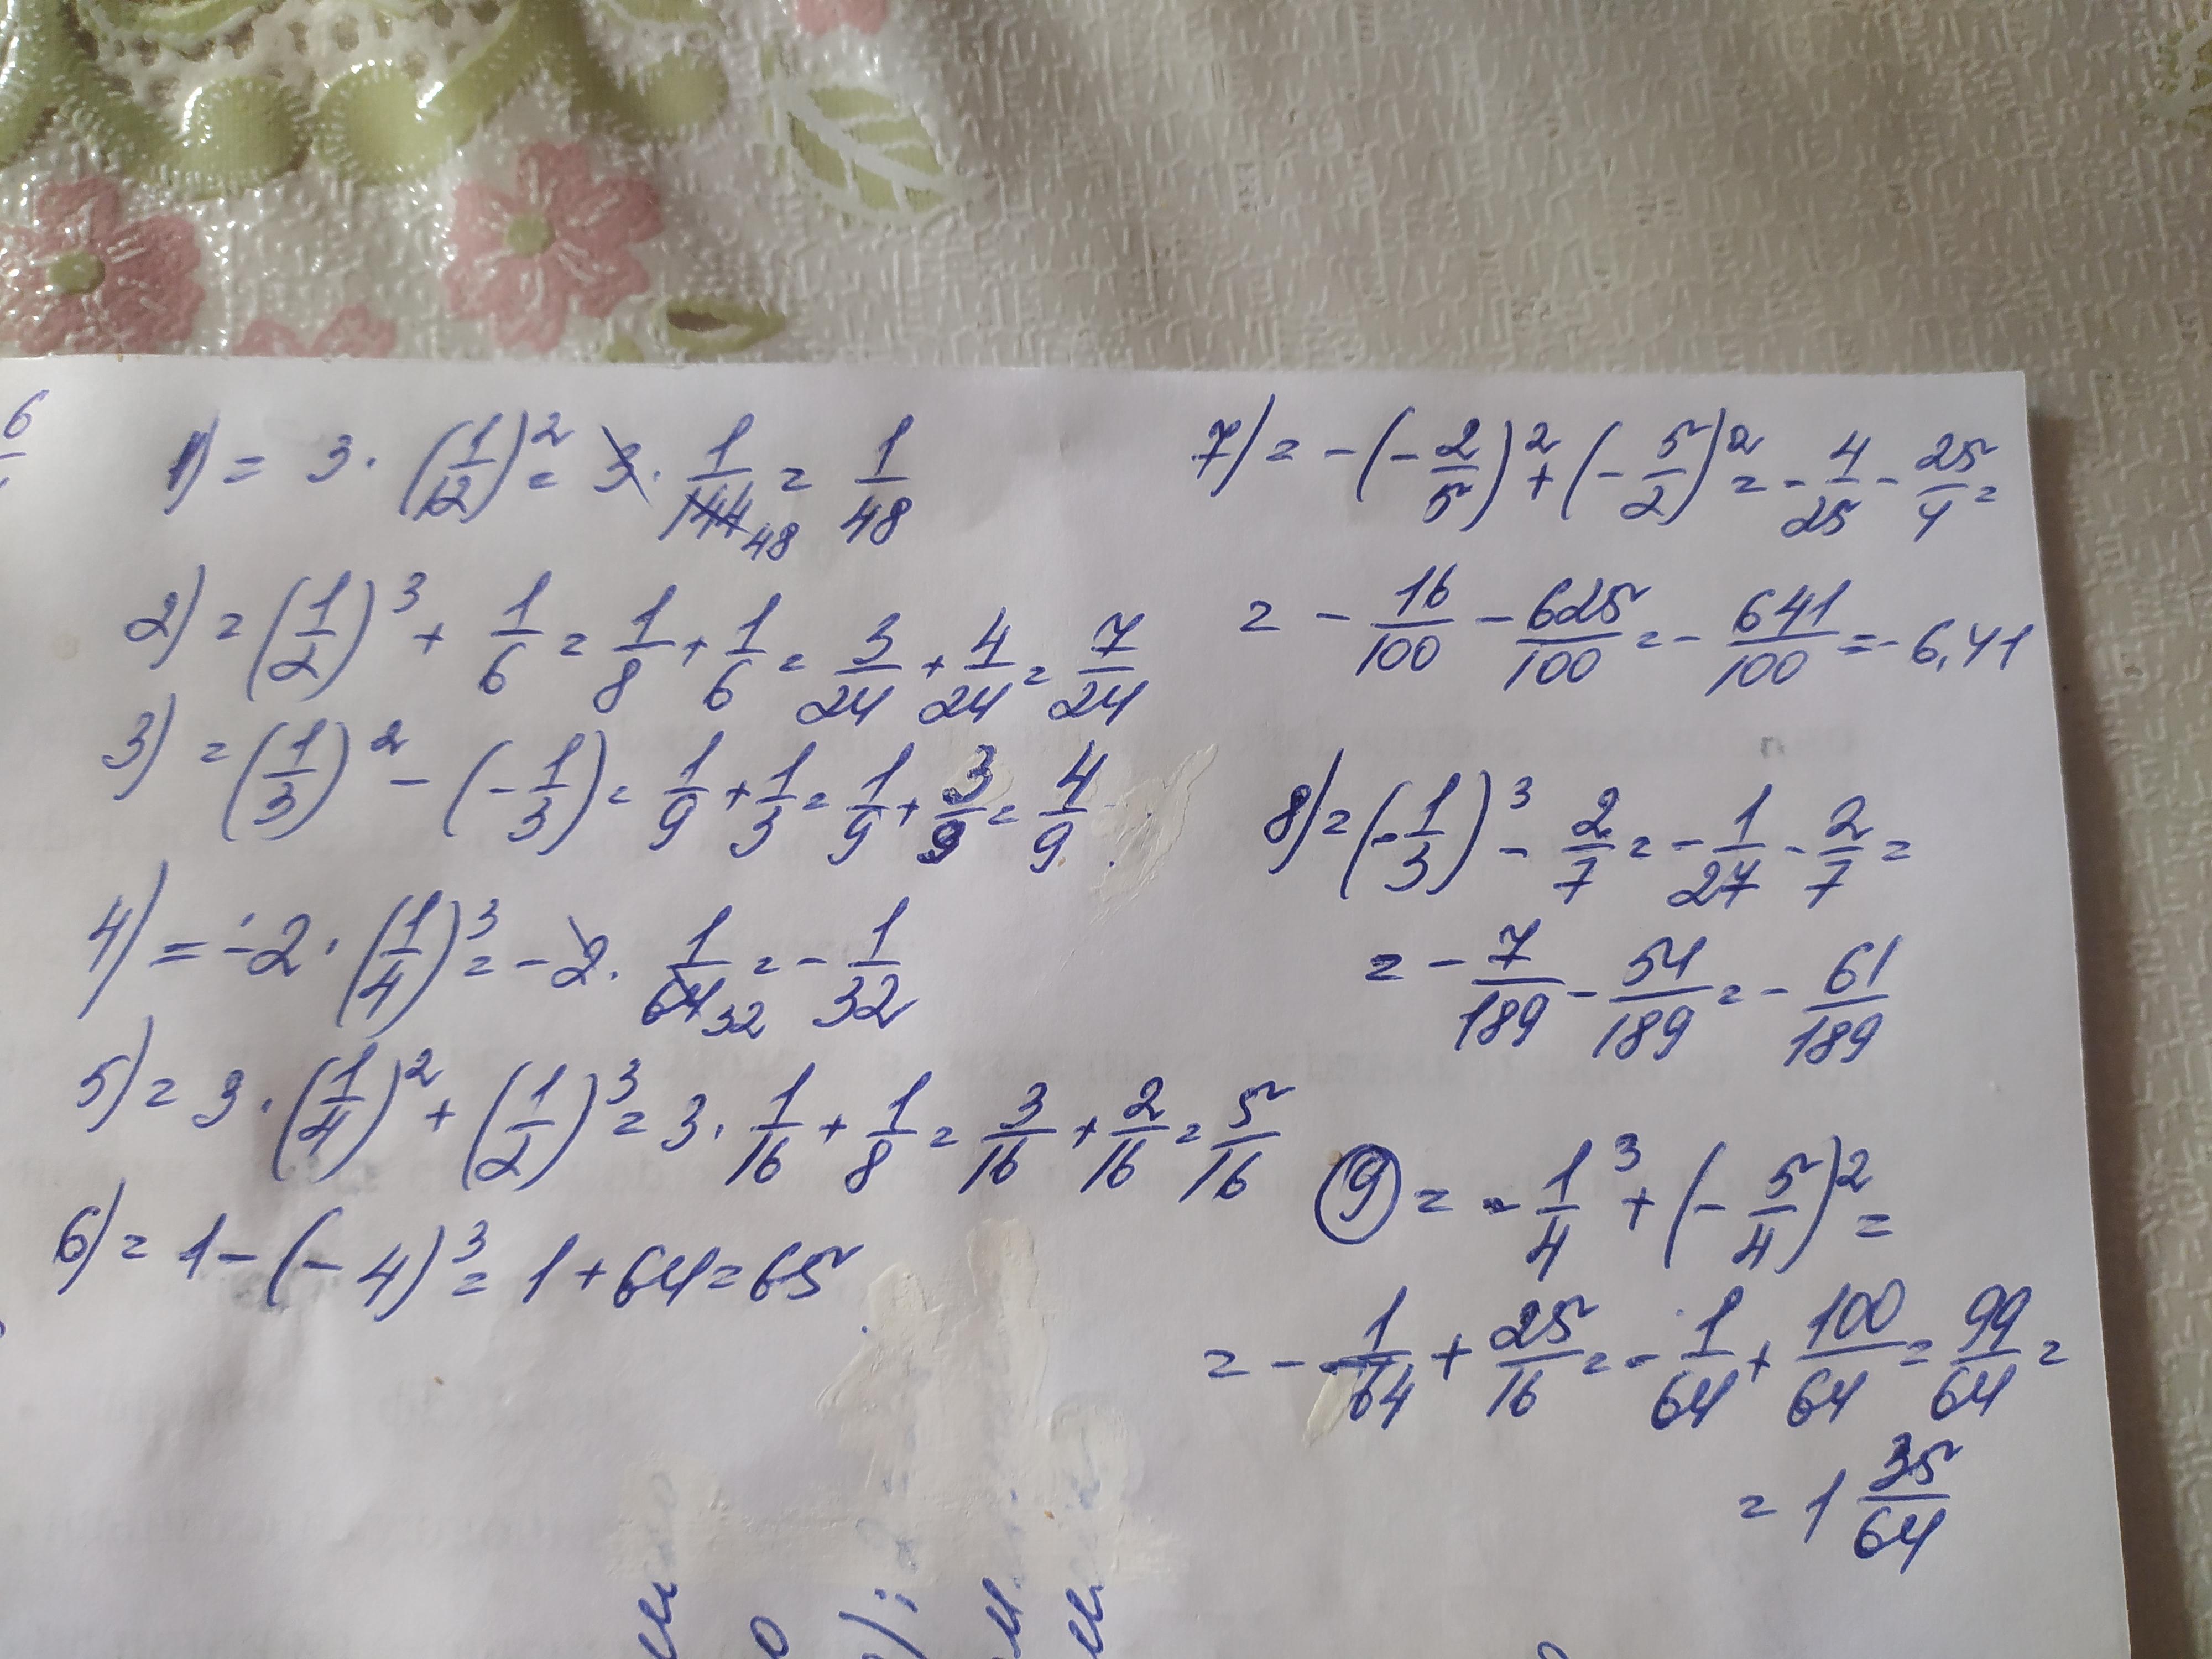 6
1) = 3 · (1/12)² = 3 · 1/144 48 = 1/48
2) = (1/2)³ + 1/6 = 1/8 + 1/6 = 3/24 + 4/24 = 7/24
3) = (1/3)² - (-1/3) = 1/9 + 1/3 = 1/9 + 3/9 = 4/9
4) = -2 · (1/4)³ = -2 · 1/64 32 = -1/32
5) = 3 · (1/4)² + (1/2)³ = 3 · 1/16 + 1/8 = 3/16 + 2/16 = 5/16
6) = 1 - (-4)³ = 1 + 64 = 65
7) = -(-2/5)² + (-5/2)² = -4/25 - 25/4 =
= -16/100 - 625/100 = -641/100 = -6,41
8) = (-1/3)³ - 2/7 = -1/27 - 2/7 =
= -7/189 - 54/189 = -61/189
9 = -1/4³ + (-5/4)² =
= -1/64 + 25/16 = -1/64 + 100/64 = 99/64 =
= 1 35/64